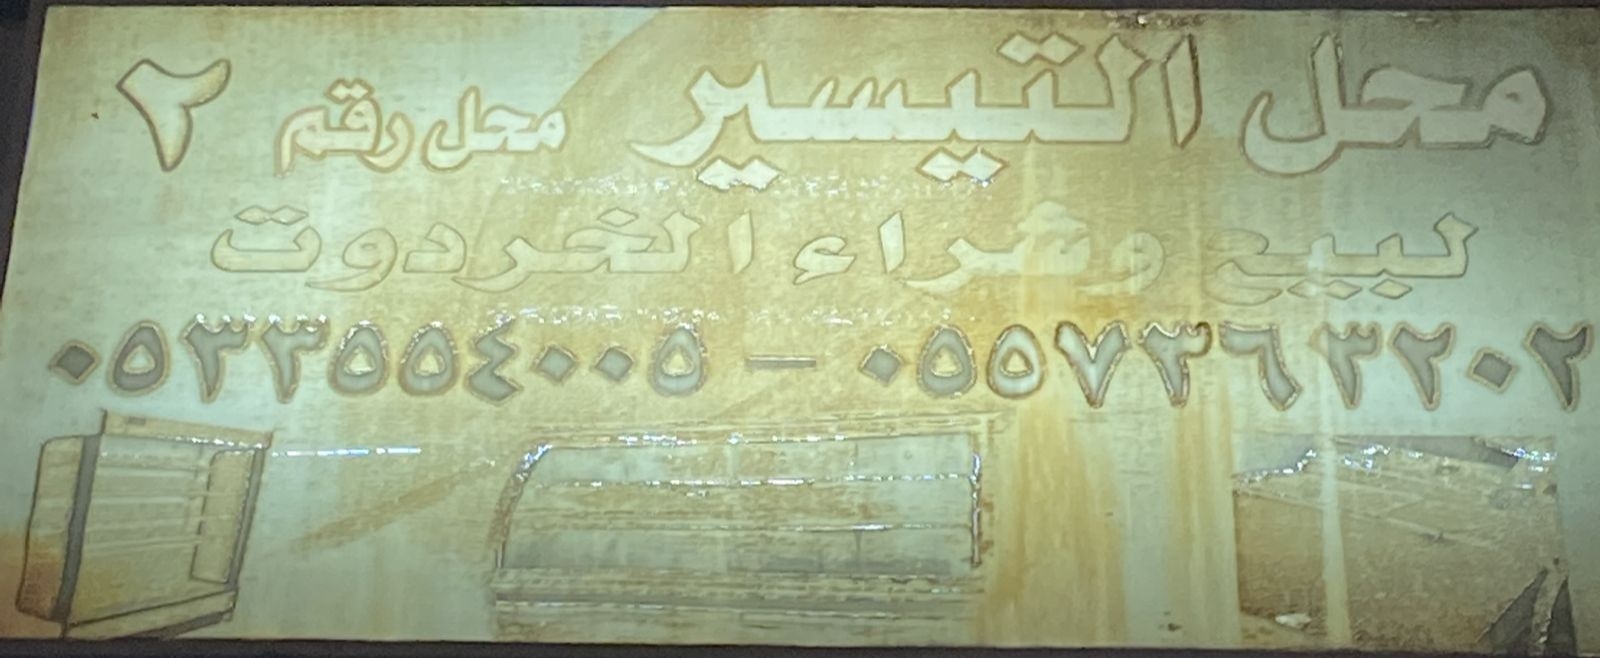 محل التيسير محل رقم ٢
لبيع وشراء الخردوت
٠٥٣٣٥٥٤٠٠٥ - ٠٥٥٧٣٦٣٢٠٢